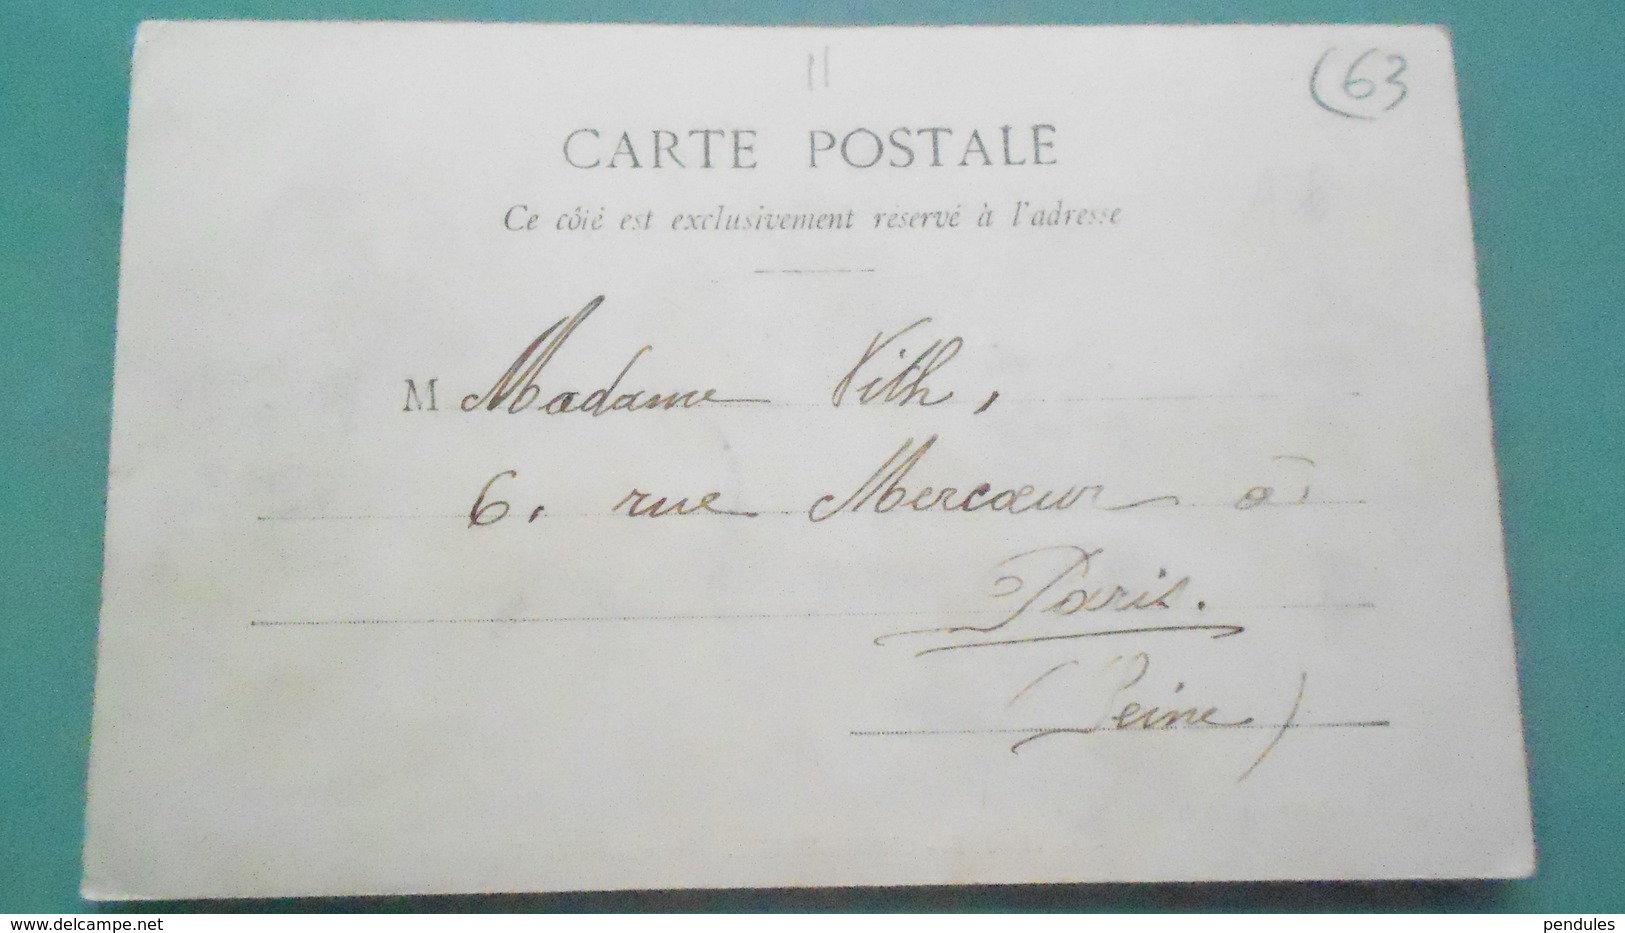 11
(63
CARTE POSTALE
Ce côté est exclusivement réservé à l'adresse
M Madame Vith,
6, rue Mercœur à
Paris.
(Seine)
www.delcampe.net
pendules